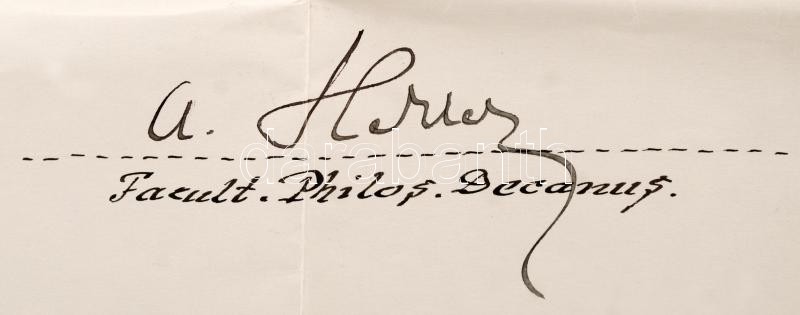 A. Heller
darabanth
Facult. Philos. Decanus.